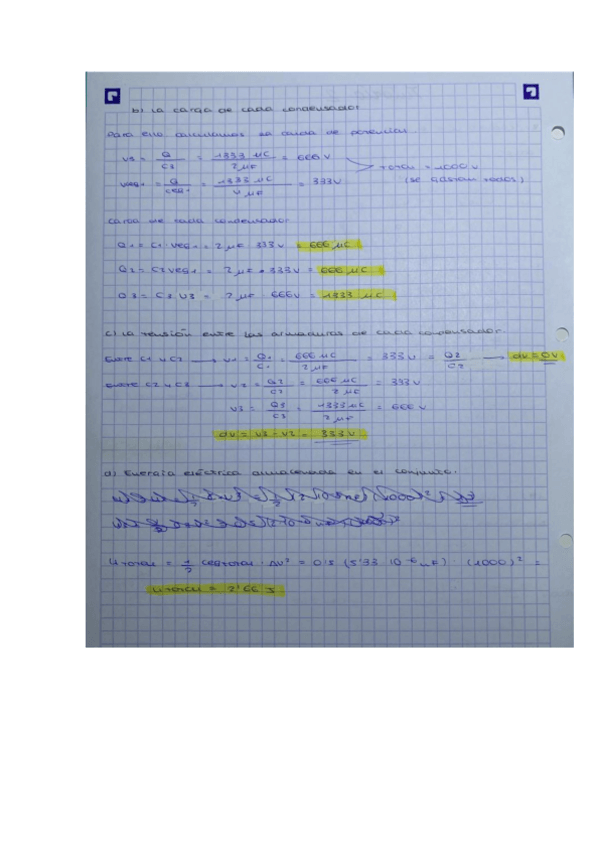 b) La carga de cada condensador
Para ello calculamos la caída de potencial
V3 = Q / C3 = 1333 μC / 2 μF = 666 V
Total = 1000 V
Veq1 = Q / Ceq1 = 1333 μC / 4 μF = 333V
(se gastan todos)
Carga de cada condensador
Q1 = C1 · Veq1 = 2 μF · 333 V = 666 μC
Q2 = C2 Veq1 = 2 μF · 333 V = 666 μC
Q3 = C3 · V3 = 2 μF · 666V = 1333 μC
c) La tensión entre las armaduras de cada condensador.
Entre C1 y C2 → V1 = Q1 / C1 = 666 μC / 2 μF = 333 V = Q2 / C2 → ΔV = 0V
Entre C2 y C3 → V2 = Q2 / C2 = 666 μC / 2 μF = 333 V
V3 = Q3 / C3 = 1333 μC / 2 μF = 666 V
ΔV = V3 - V2 = 333 V
d) Energía eléctrica almacenada en el conjunto.
U total = 1/2 Ceq total · ΔV² = 0'5 (5'33 · 10⁻⁶ μF) · (1000)² =
U total = 2'66 J